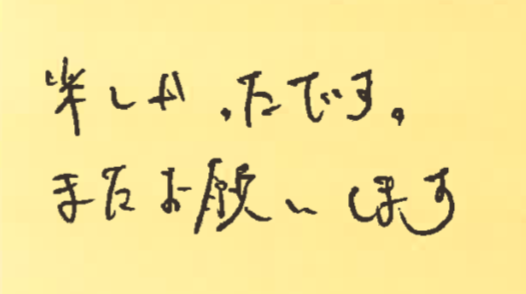 楽しかったです。
またお願いします